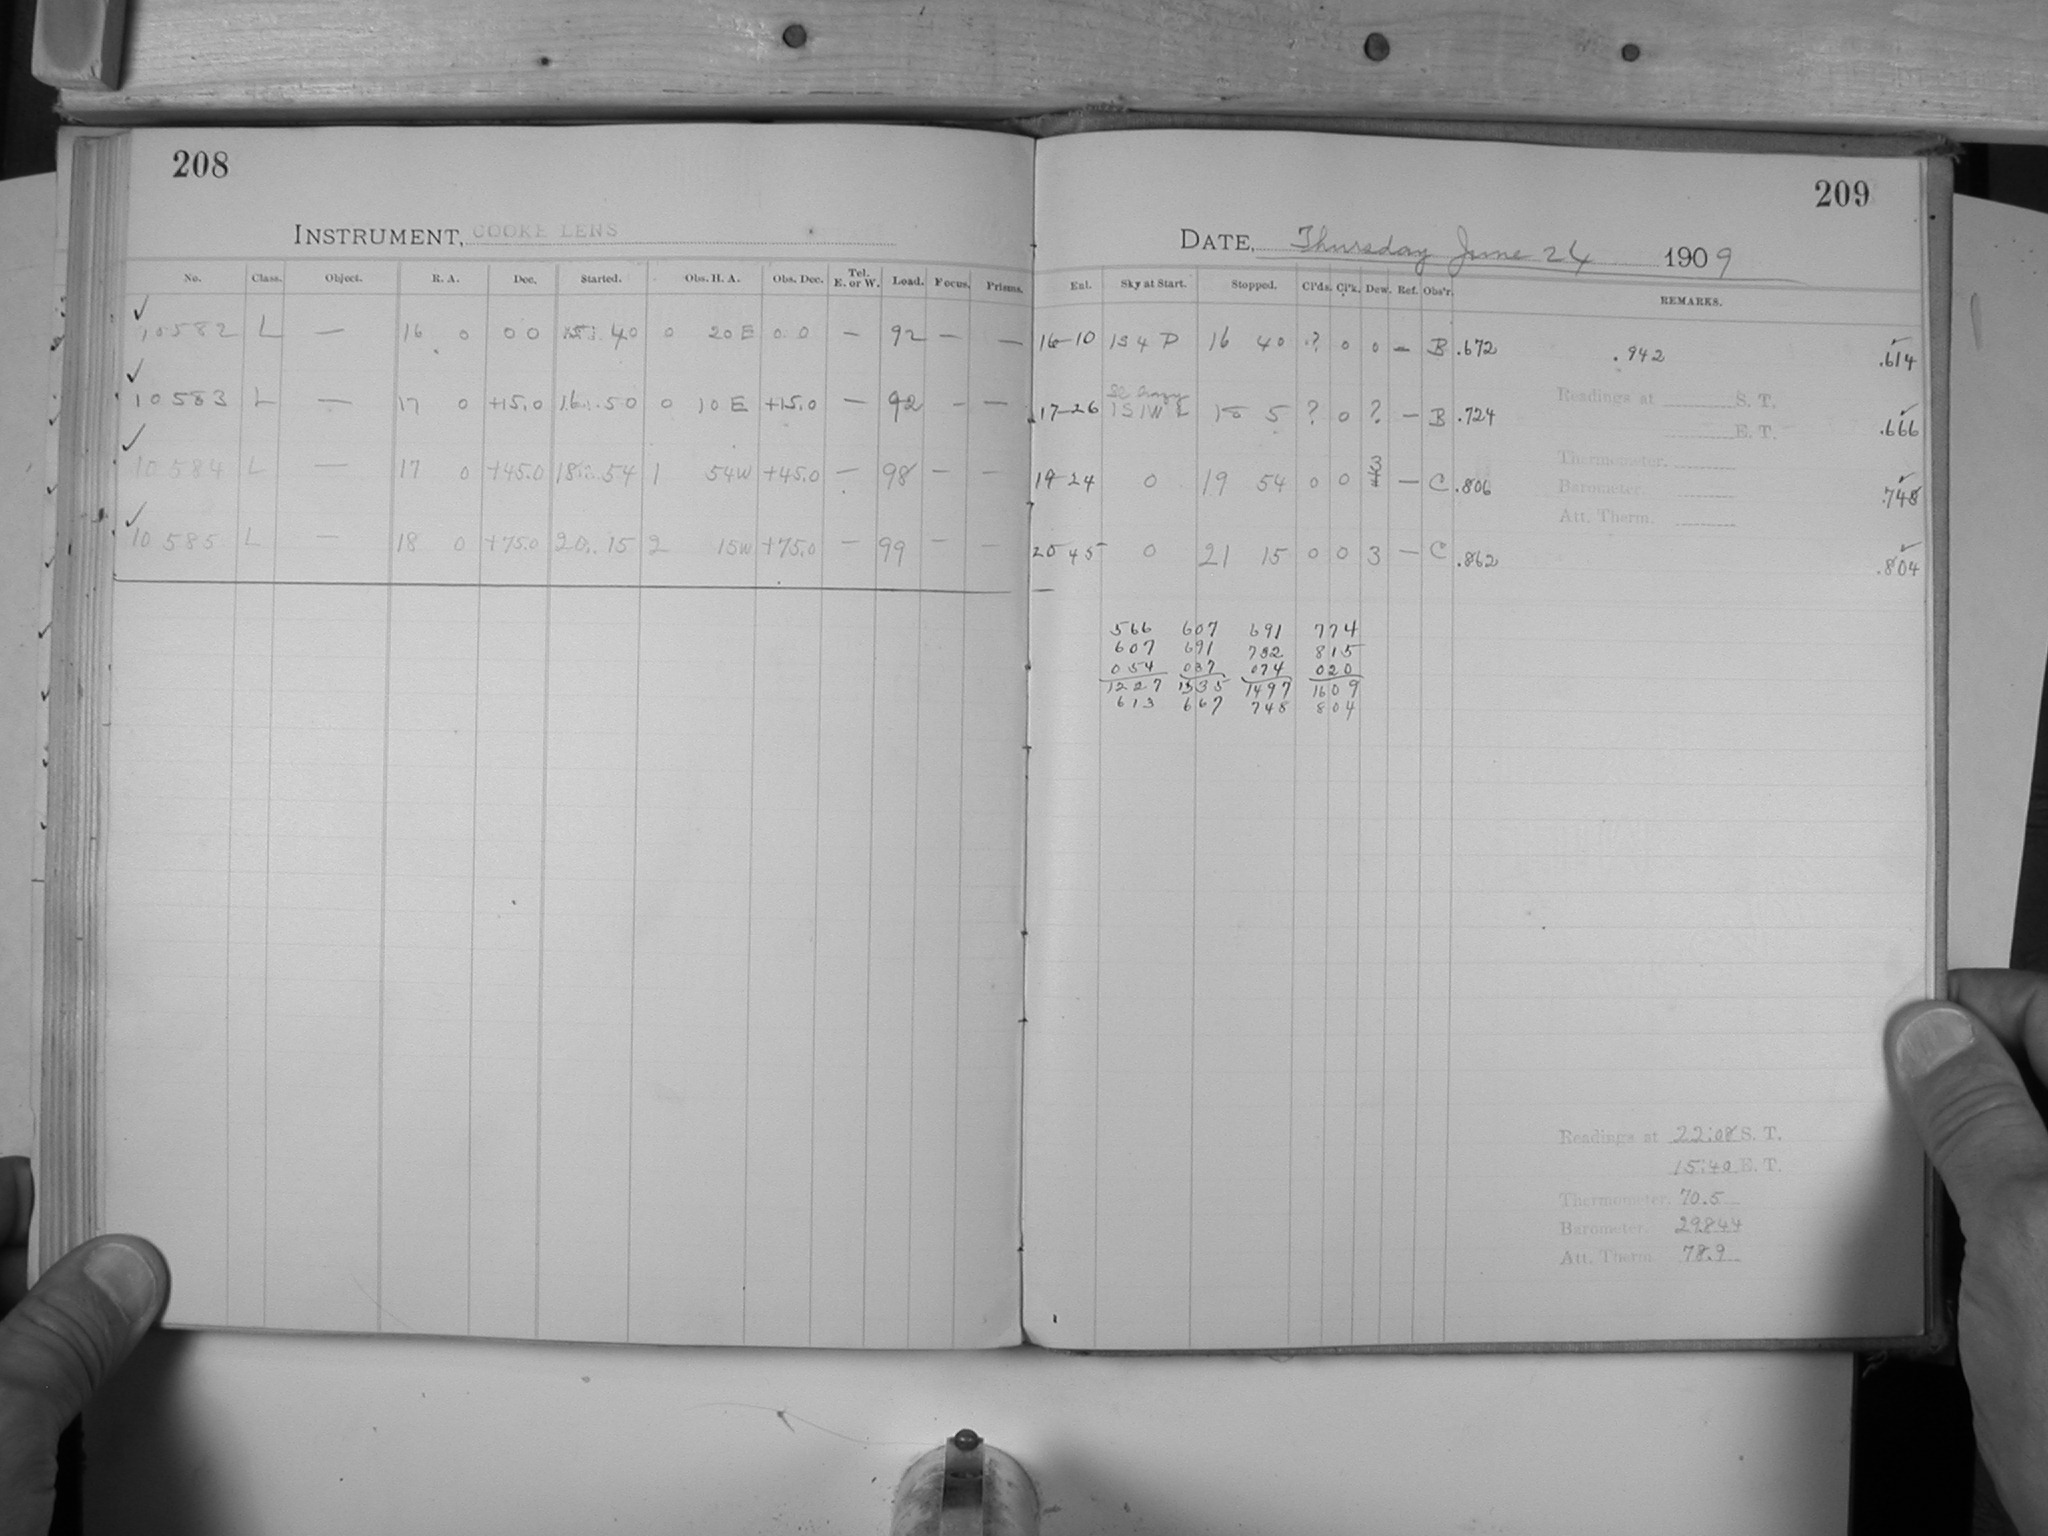 208
INSTRUMENT, COOKE LENS
No. Class. Object. R. A. Dec. Started. Obs. H. A. Obs. Dec. Tel. E. or W. Load. Focus. Prisms.
10582 L — 16 0 00 15 40 0 20 E 0.0 — 92 — —
10583 L — 17 0 +15.0 16 50 0 10 E +15.0 — 92 — —
10584 L — 17 0 +45.0 18 54 1 54W +45.0 — 98 — —
10585 L — 18 0 +75.0 20 15 2 15W +75.0 — 99 — —
209
DATE, Thursday June 24 1909
Sky at Start. Stopped. Cl'ds. Cl'k. Dew. Ref. Obs'r. REMARKS.
16-10 1S4 P 16 40 ? 0 0 — B .672 .942 .614
17-26 1S1W 5 ? 0 ? — B .724 .666
19-24 0 19 54 0 0 3 — C .806 .748
20 45 0 21 15 0 0 3 — C .862 .804
Readings at S. T.
E. T.
Thermometer.
Barometer.
Att. Therm.
566 607 691 774
607 691 732 815
054 037 074 020
1227 1335 1497 1609
613 667 748 804
Readings at 22:08 S. T.
15:40 E. T.
Thermometer. 70.5
Barometer. 29.844
Att. Therm. 78.9